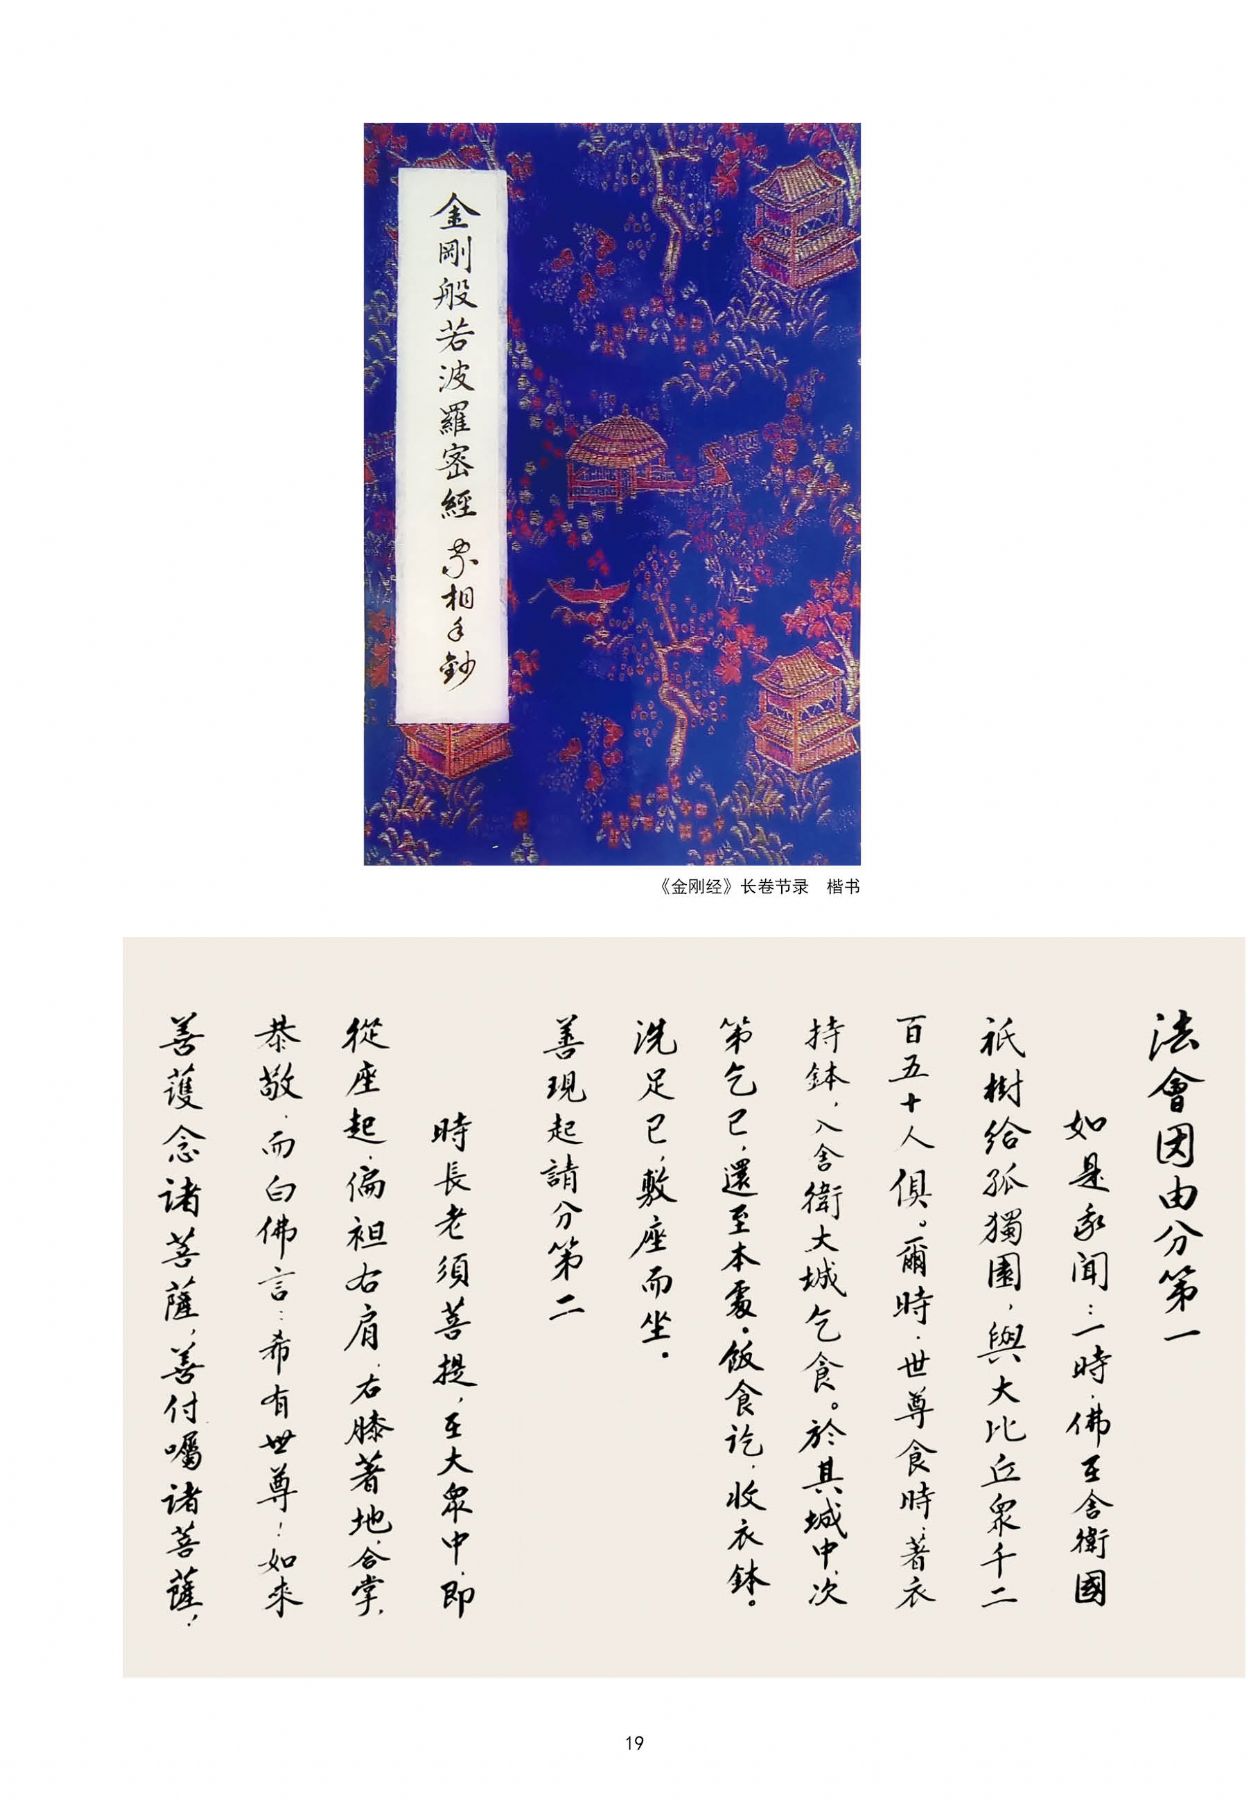 金剛般若波羅密經 相手鈔
《金刚经》长卷节录　楷书
法會因由分第一
如是我聞：一時，佛在舍衛國
祇樹給孤獨園，與大比丘眾千二
百五十人俱。爾時，世尊食時，著衣
持鉢，入舍衛大城乞食。於其城中，次
第乞已，還至本處。飯食訖，收衣鉢。
洗足已，敷座而坐。
善現起請分第二
時長老須菩提，在大眾中，即
從座起，偏袒右肩，右膝著地，合掌，
恭敬，而白佛言：希有世尊！如來
善護念諸菩薩，善付囑諸菩薩！
19